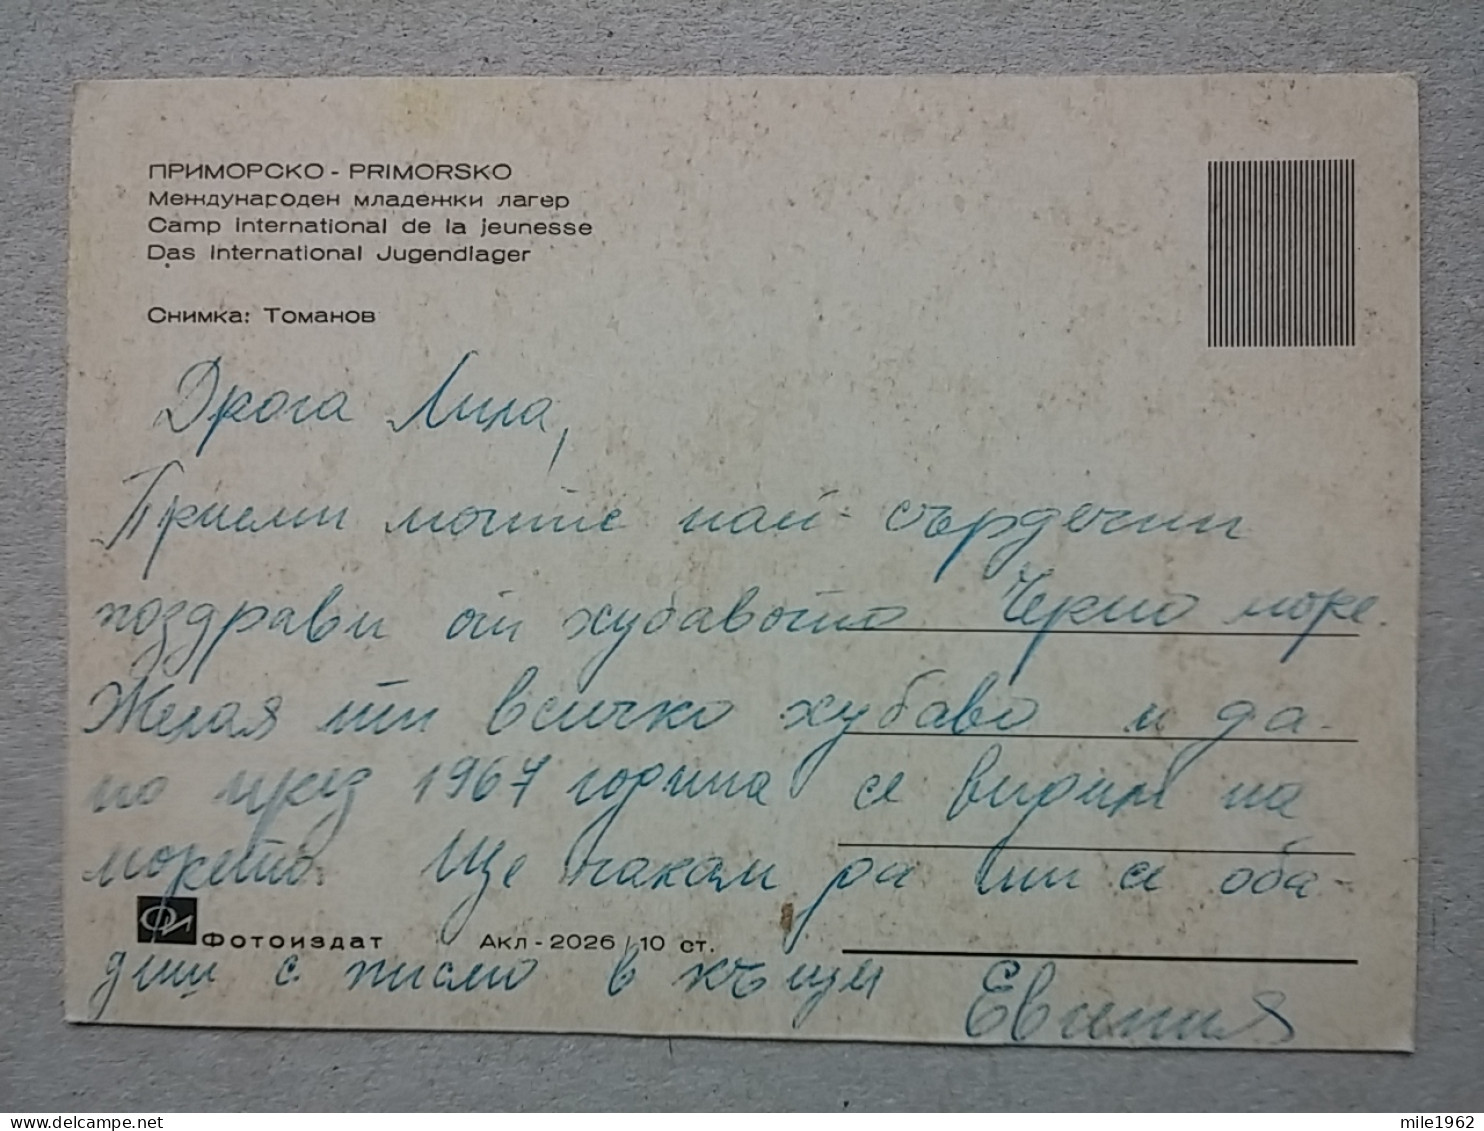 ПРИМОРСКО - PRIMORSKO
Международен младежки лагер
Camp international de la jeunesse
Das International Jugendlager
Снимка: Томанов
Драга Лила,
Приеми моите най-сърдечни
поздрави от хубавото Черно море.
Желая ти всичко хубаво и да-
но през 1967 година се видим на
морето. Ще чакам да ми се оба-
ФИ Фотоиздат Акл - 2026 / 10 ст.
диш с писмо в къщи Евгения
mile1962